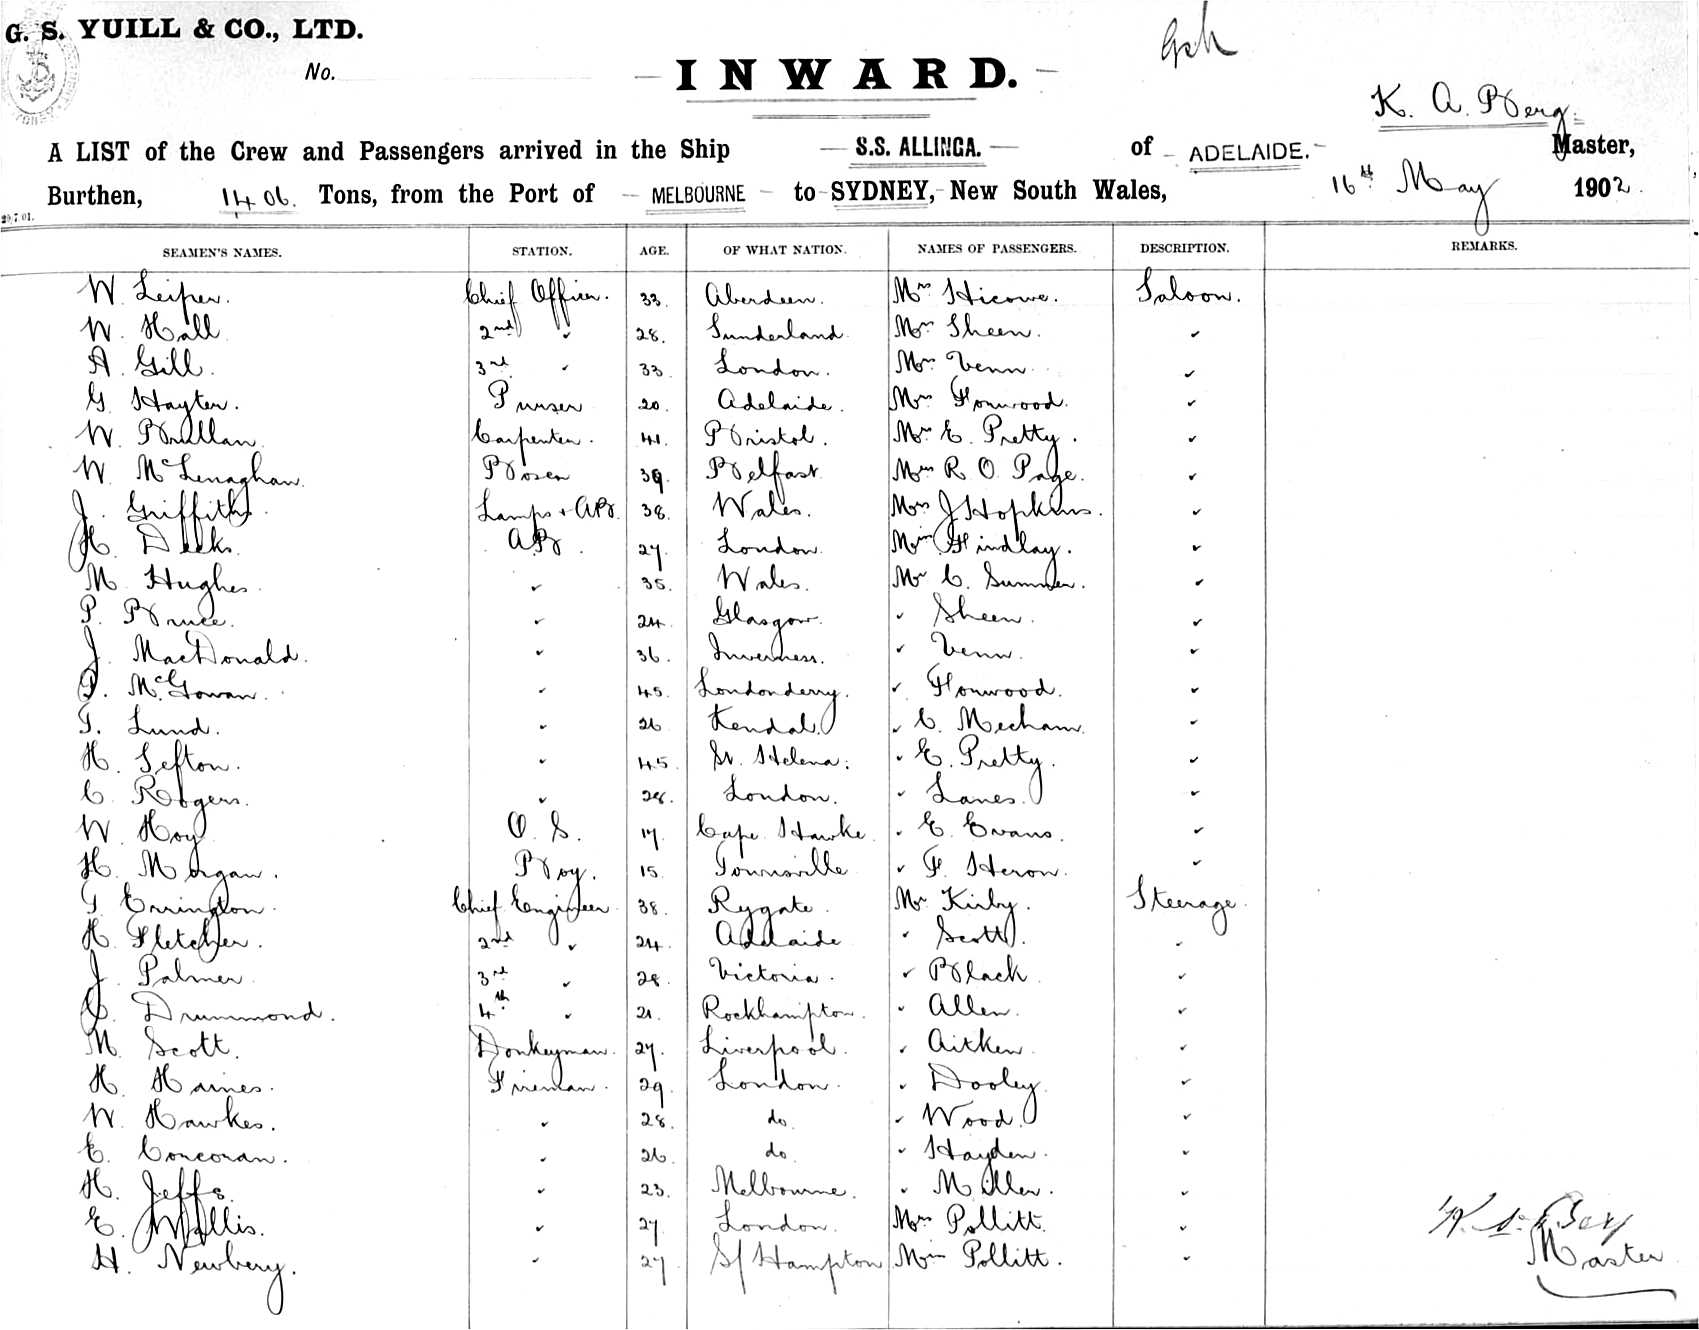 G. S. YUILL & CO., LTD.
No.
INWARD.
K. A. Berg.
A LIST of the Crew and Passengers arrived in the Ship S.S. ALLINGA. of ADELAIDE. Master,
Burthen, 1406. Tons, from the Port of MELBOURNE to SYDNEY, New South Wales, 16th May 1902.
SEAMEN'S NAMES. STATION. AGE. OF WHAT NATION. NAMES OF PASSENGERS. DESCRIPTION. REMARKS.
W. Leiper. Chief Officer. 33. Aberdeen. Mrs Hicowe. Saloon.
W. Hall 2nd " 28. Sunderland. Mrs Sheen. "
A. Gill. 3rd " 33. London. Mrs Venn. "
G. Hayter. Purser 20. Adelaide. Mrs Forwood. "
W. Brullan. Carpenter. 41. Bristol. Mrs E. Pretty. "
W. McLenaghan. Bosen 39. Belfast. Mrs R. O. Page. "
J. Griffiths. Lamps & AB. 38. Wales. Mrs J Hopkins. "
H. Deeks. AB. 27. London. Miss Findlay. "
M. Hughes. " 35. Wales. Mr C. Summer. "
P. Bruce. " 24. Glasgow. " Sheen. "
J. MacDonald. " 36. Inverness. " Venn. "
P. McGowan. " 45. Londonderry. " Forwood. "
T. Lund. " 26 Kendal. " C. Mecham. "
H. Sefton. " 45. St. Helena. " E. Pretty. "
C. Rogers. " 28. London. " Lanes. "
W. Hoy O. S. 17. Cape Hawke. " E. Evans. "
H. Morgan. Boy. 15. Townsville " F. Heron. "
T Errington. Chief Engineer 38. Rygate. Mr Kirby. Steerage.
H. Fletcher. 2nd " 24. Adelaide " Scott. "
J. Palmer. 3rd " 28. Victoria. " Black "
C. Drummond. 4th " 21. Rockhampton. " Allen. "
M. Scott. Donkeyman. 27. Liverpool. " Aitken. "
H. Haines. Fireman. 29. London. " Dooley. "
W. Hawkes. " 28. do. " Wood. "
E. Corcoran. " 26. do. " Hayden. "
H. Jeffs. " 23. Melbourne. " Miller. "
E. Wallis. " 27. London. Mrs Pollitt. "
H. Newbery. " 27 S/Hampton Miss Pollitt. "
K. A. Berg
Master